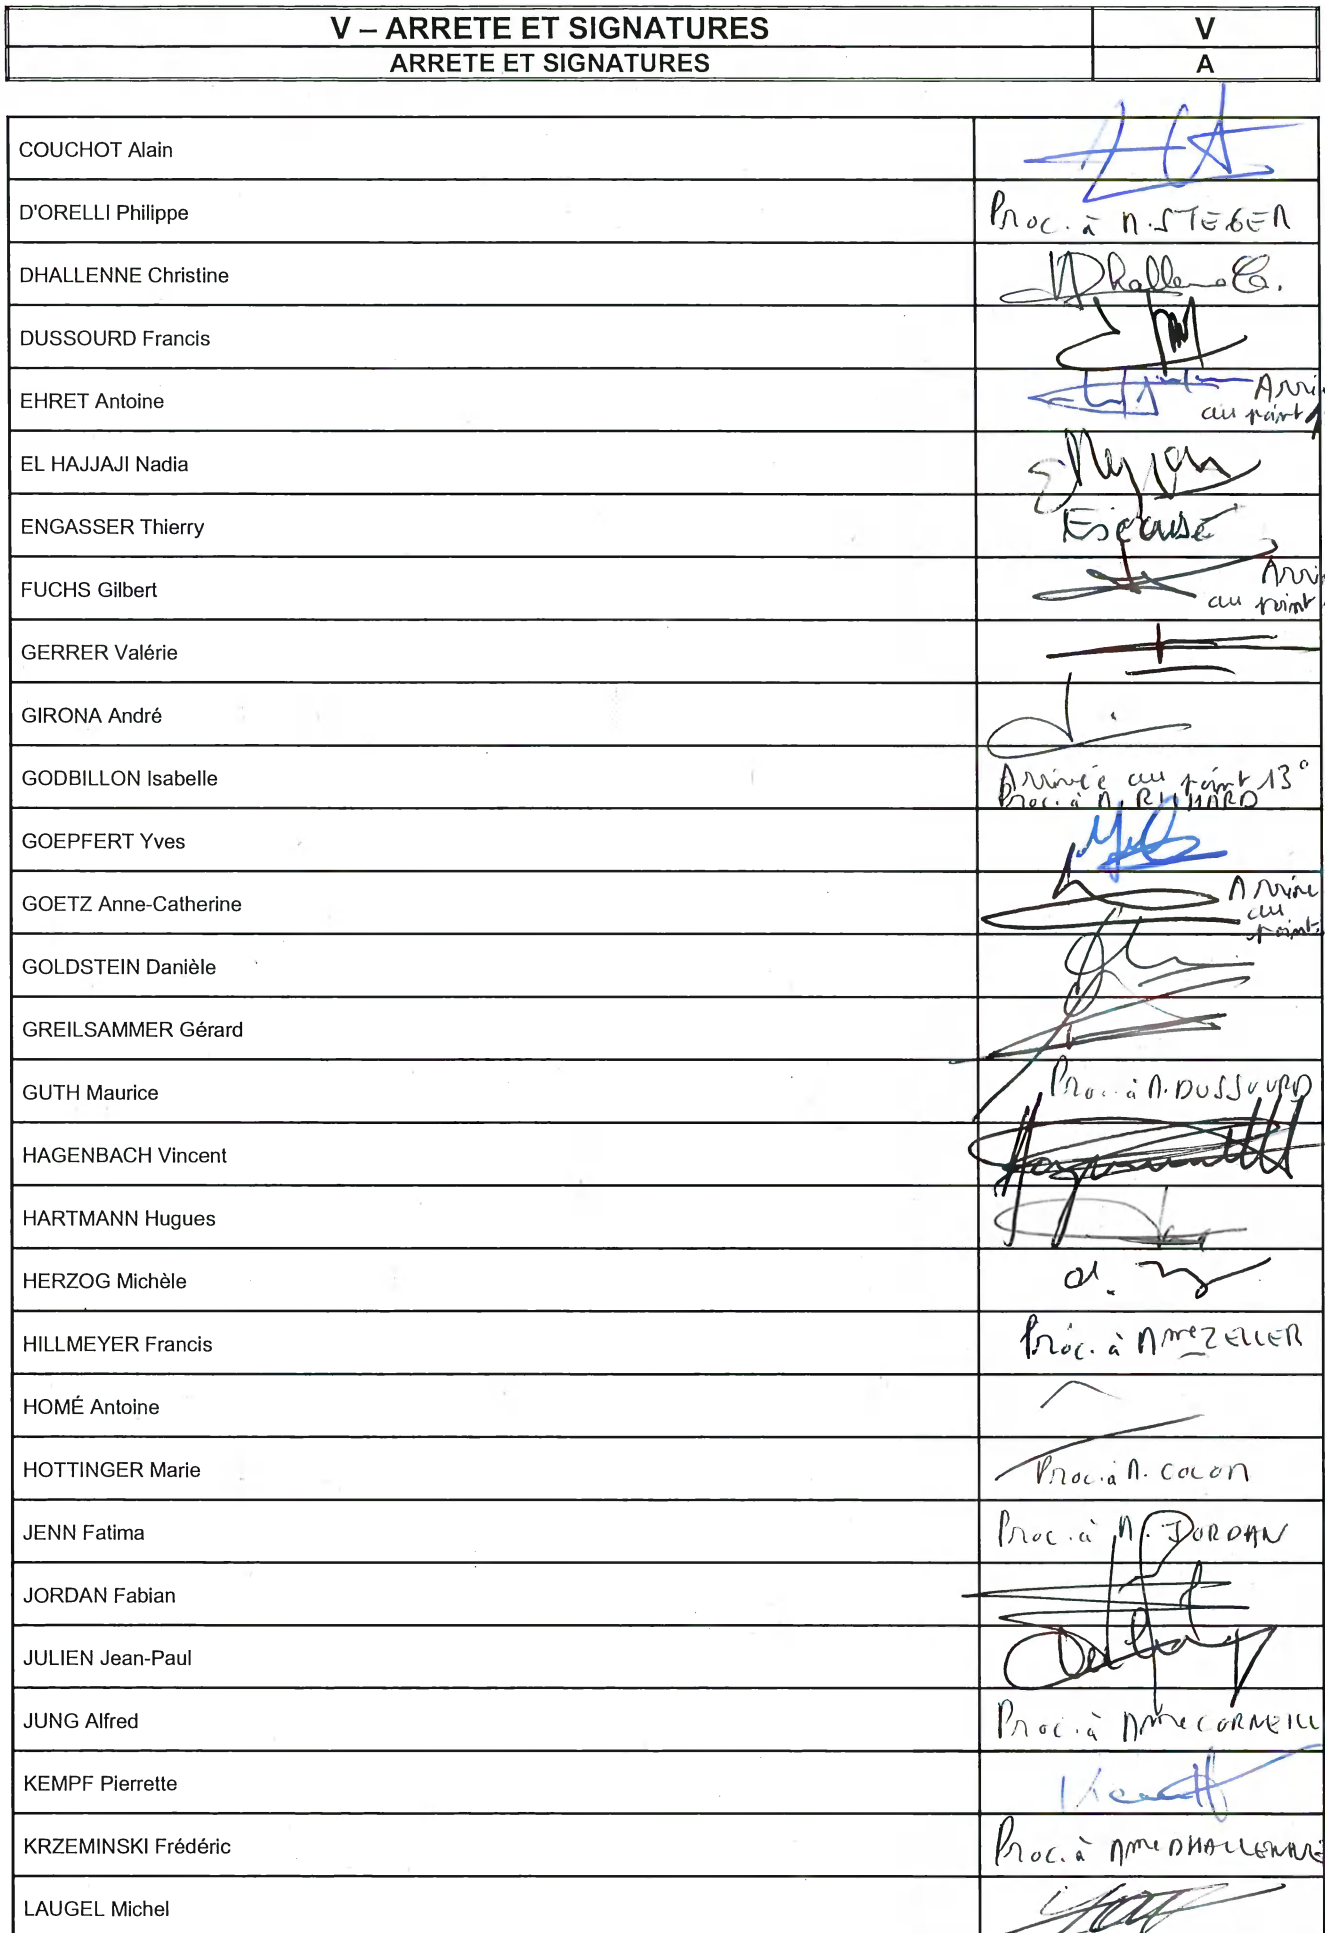 V – ARRETE ET SIGNATURES V
ARRETE ET SIGNATURES A
COUCHOT Alain
D'ORELLI Philippe Proc. à M. STEGER
DHALLENNE Christine Dhallenne C.
DUSSOURD Francis
EHRET Antoine Arri
au point
EL HAJJAJI Nadia
ENGASSER Thierry Excusé
FUCHS Gilbert Arri
au point
GERRER Valérie
GIRONA André
GODBILLON Isabelle Arrivée au point 13°
Proc. à M. RICHARD
GOEPFERT Yves
GOETZ Anne-Catherine Arrivé
au
point
GOLDSTEIN Danièle
GREILSAMMER Gérard
GUTH Maurice Proc. à M. DUSSOURD
HAGENBACH Vincent
HARTMANN Hugues
HERZOG Michèle
HILLMEYER Francis Proc. à Mme ZELLER
HOMÉ Antoine
HOTTINGER Marie Proc. à M. COLON
JENN Fatima Proc. à M. JORDAN
JORDAN Fabian
JULIEN Jean-Paul
JUNG Alfred Proc. à Mme CORNEILL
KEMPF Pierrette
KRZEMINSKI Frédéric Proc. à Mme DHALLENNE
LAUGEL Michel